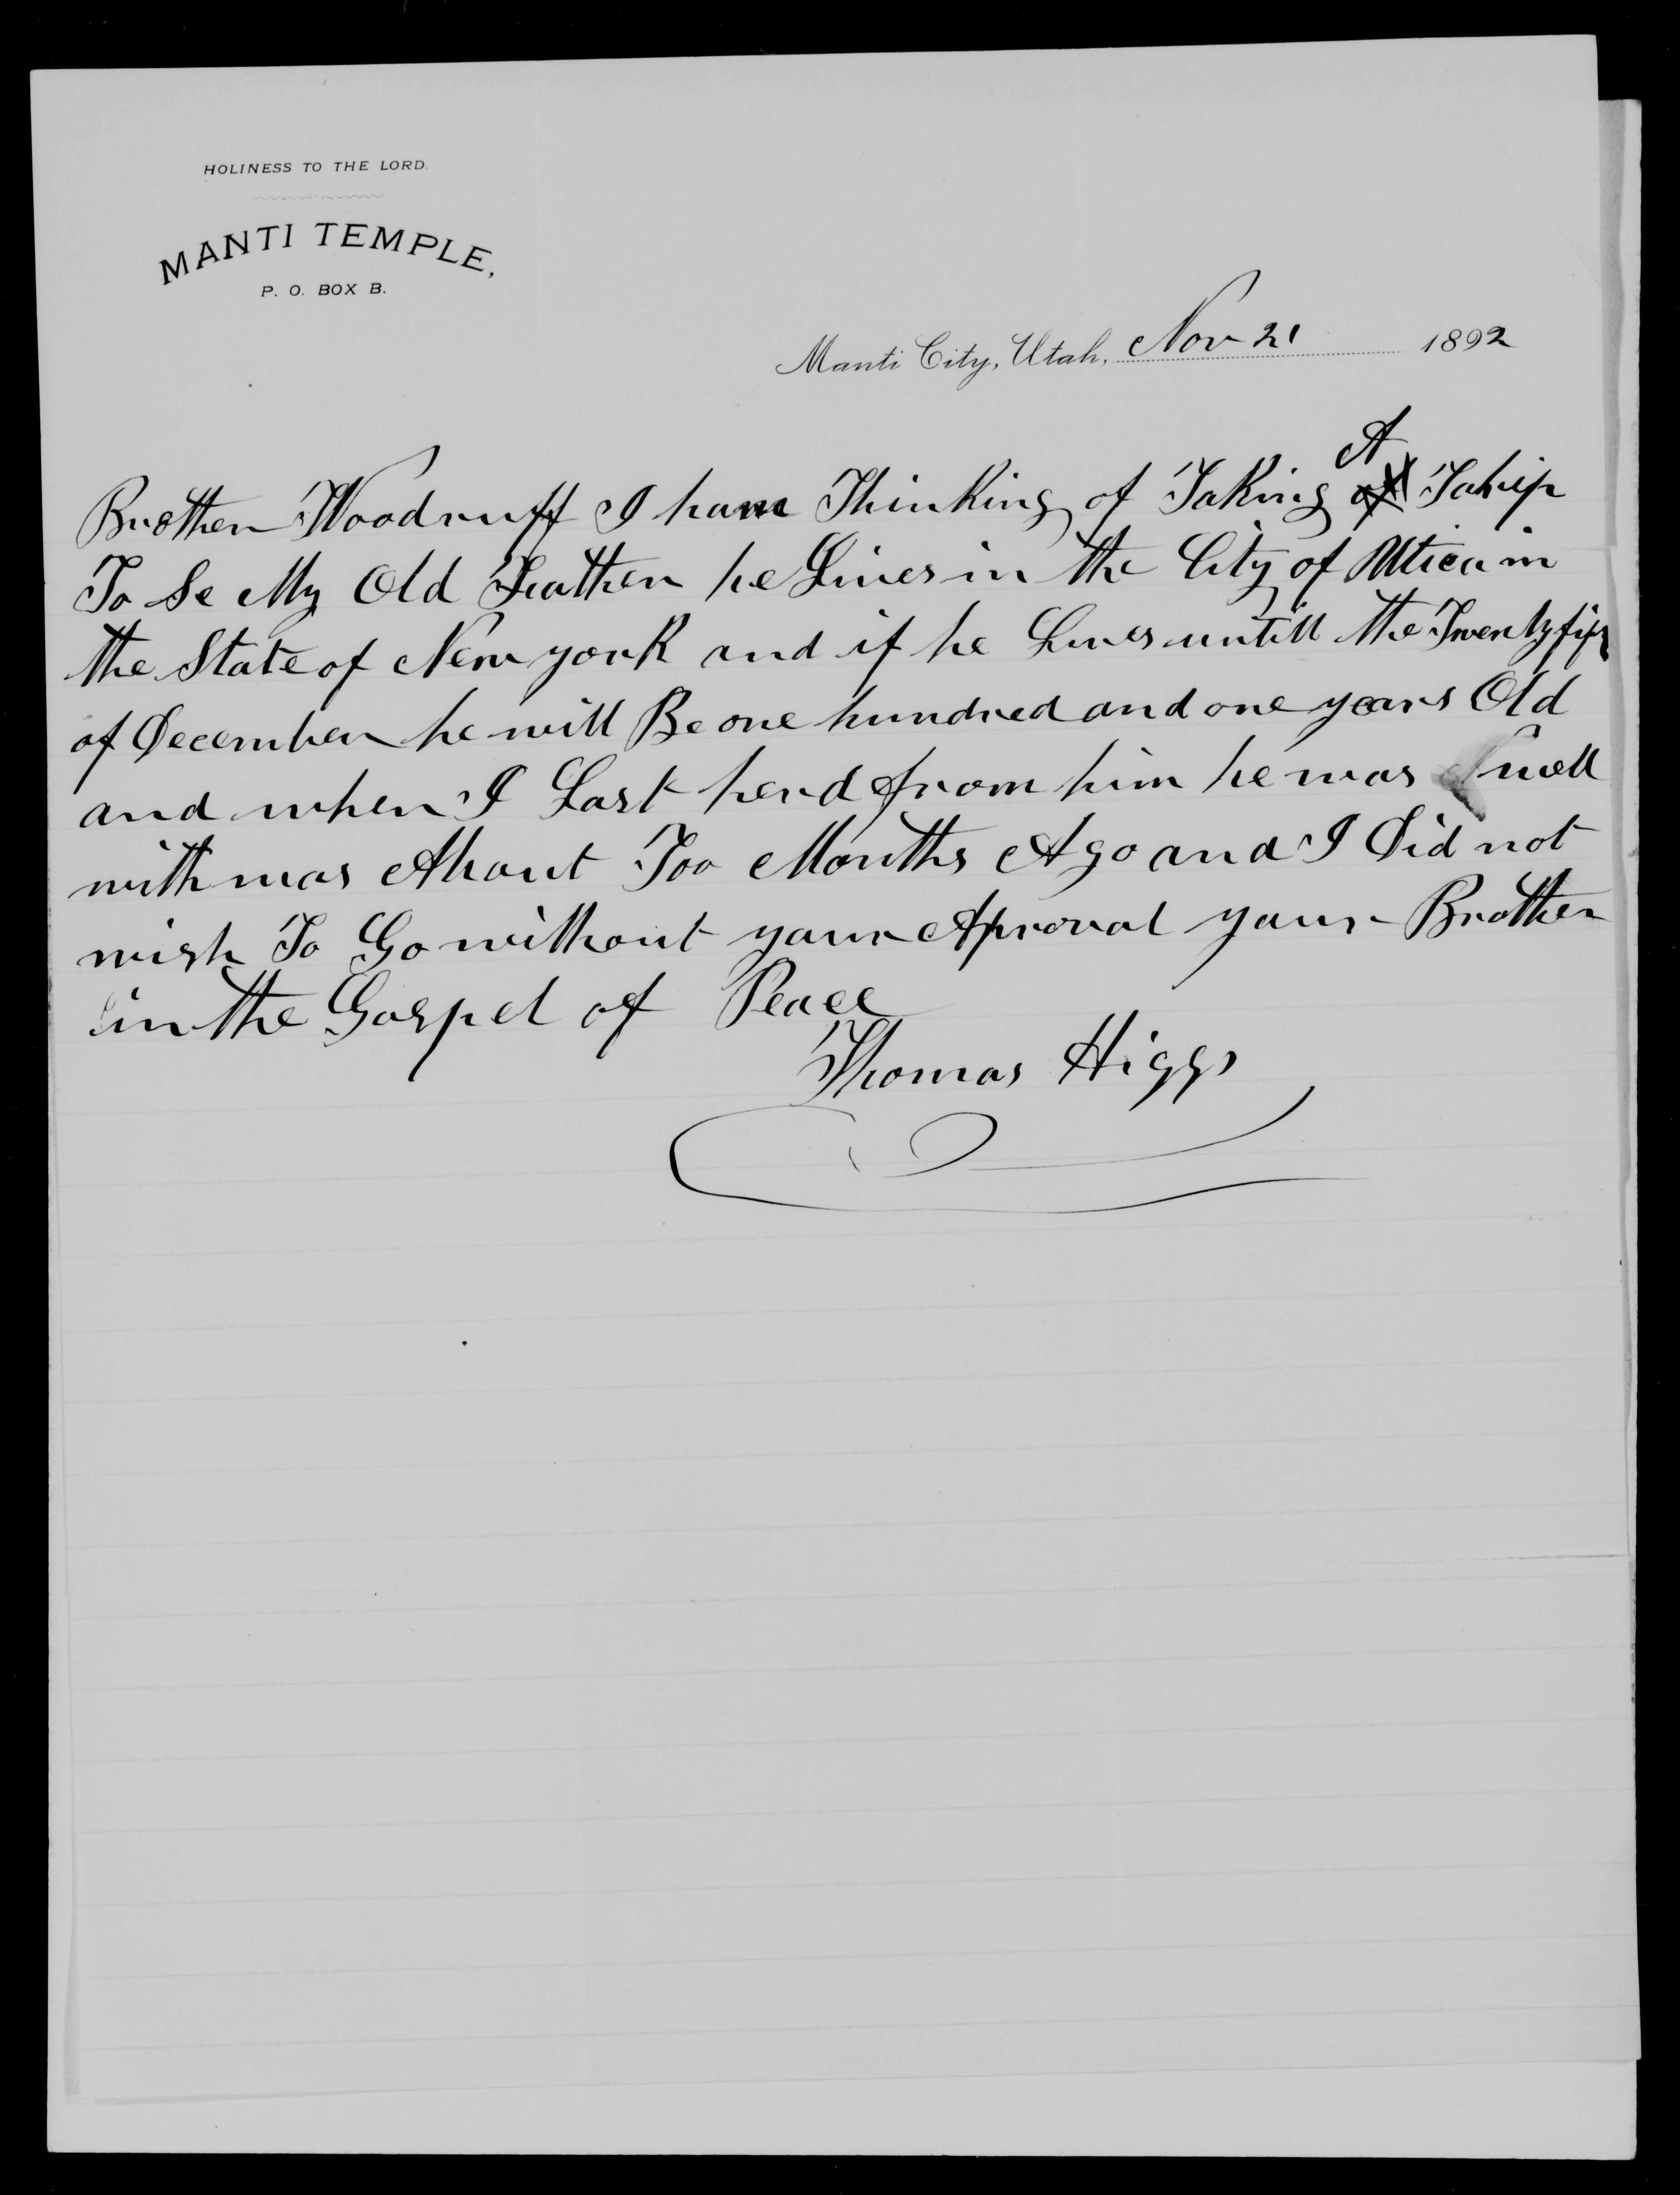 HOLINESS TO THE LORD.
MANTI TEMPLE,
P. O. BOX B.
Manti City, Utah, Nov 21 1892
A
Brother Woodruff I have Thinking of Taking Trip
To Se My Old Feather he Lives in the City of Utica in
the State of New york and if he Lives untill the Twenty
of December he will Be one hundred and one years Old
and when I Last herd from him he was well
with was About Too Months Ago and I Did not
wish To Go without your Aproval your Brother
in the Gospel of Peace
Thomas Higgs